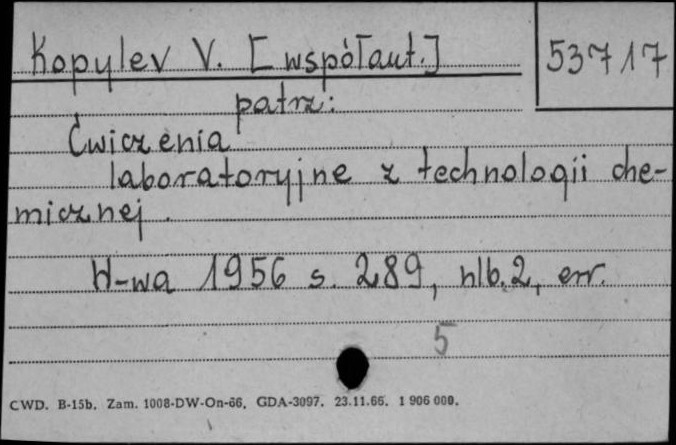 Kopylev V. [współaut.]
53717
patrz:
Ćwiczenia
laboratoryjne z technologii che-
micznej.
W-wa 1956 s. 289, nlb. 2, err.
5
CWD. B-15b. Zam. 1008-DW-On-66. GDA-3097. 23.11.66. 1 906 000.